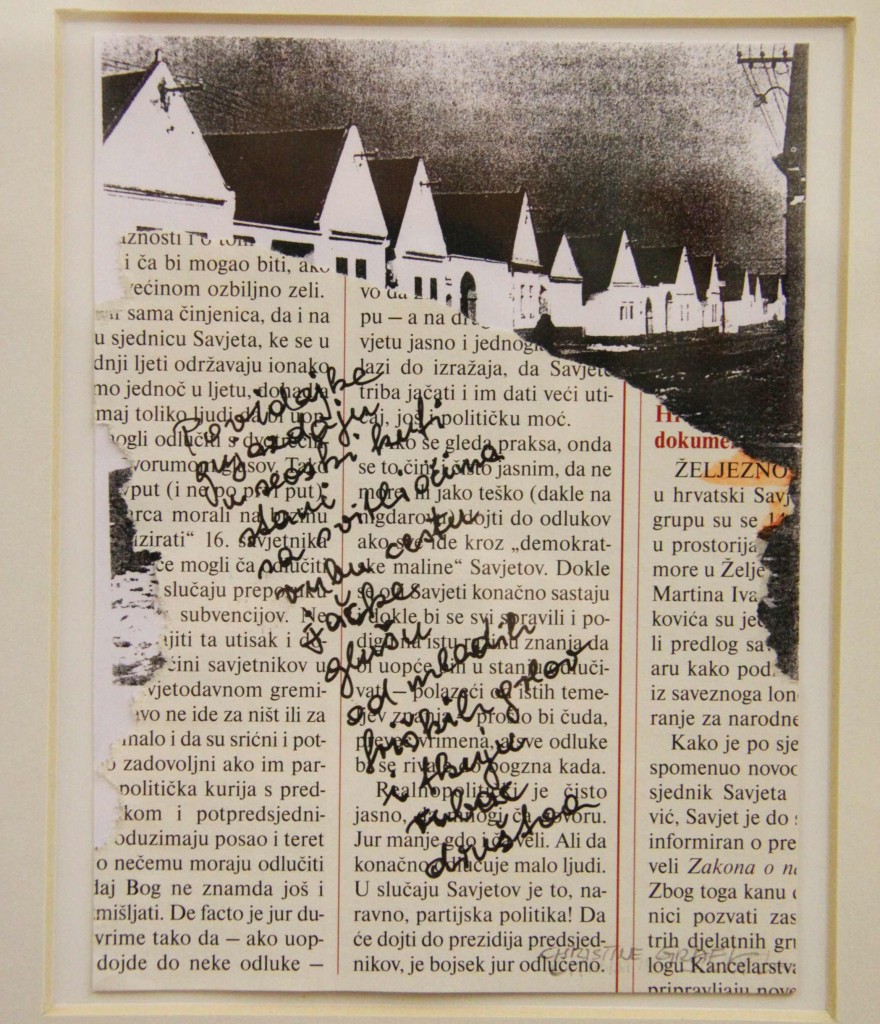 i ča bi mogao biti, ako
većinom ozbiljno zeli.
sama činjenica, da i na
u sjednicu Savjeta, ke se u
dnji ljeti održavaju ionako
mo jednoč u ljetu,
maj toliko ljudi da bi uop-
mogli odlučiti s
vorumom glasov. Tako
put (i ne po prvi put)
arca morali na brzinu
izirati“ 16. savjetnika
će mogli ča odlučiti
slučaju
subvencijov. Ne
ajiti ta utisak i
čini savjetnikov u
vjetodavnom gremi-
avo ne ide za ništ ili za
malo i da su srićni i pot-
o zadovoljni ako im par-
politička kurija s pred-
kom i potpredsjedni-
oduzimaju posao i teret
o nečemu moraju odlučiti
daj Bog ne znamda još i
mišljati. De facto je jur du-
vrime tako da – ako uop-
dojde do neke odluke –
vo da
pu – a na
vjetu jasno i
lazi do izražaja, da Savjete
triba jačati i im dati veći uti-
caj, još političku moć.
Ako se gleda praksa, onda
se to čini čisto jasnim, da ne
more ili jako teško (dakle na
nigdarovo) dojti do odlukov
ako se ide kroz „demokrat-
ske maline“ Savjetov. Dokle
se ovi Savjeti konačno sastaju
i dokle bi se svi spravili i po-
digli na istu razinu znanja da
bi uopće bili u stanju odluči-
vati – polazeći od istih teme-
ljev znanja – prošlo bi čuda,
previše vrimena, a sve odluke
bi se rivale po bogzna kada.
Realnopolitički je čisto
jasno, da mnogi ča govoru.
Jur manje gdo i ča veli. Ali da
konačno odlučuje malo ljudi.
U slučaju Savjetov je to, na-
ravno, partijska politika! Da
će dojti do prezidija predsjed-
nikov, je bojsek jur odlučeno.
dokume
ŽELJEZNO
u hrvatski Savj
grupu su se
u prostorija
more u Želje
Martina Iva
kovića su je
li predlog sa
aru kako pod
iz saveznoga lon
ranje za narodne
Kako je po sje
spomenuo novoo
sjednik Savjeta
vić, Savjet je do
informiran o pre
veli Zakona o n
Zbog toga kanu
nici pozvati zas
trih djelatnih gru
logu Kancelarstva
pripravljaju nove
Povidajke
gnjazdaju
u seoski kuti
slavi
sa svitlioćima
rubu cestu
Tačke
glušu
od mladih
hižkih psov
i tkuju
rubac
društva
CHRISTINE